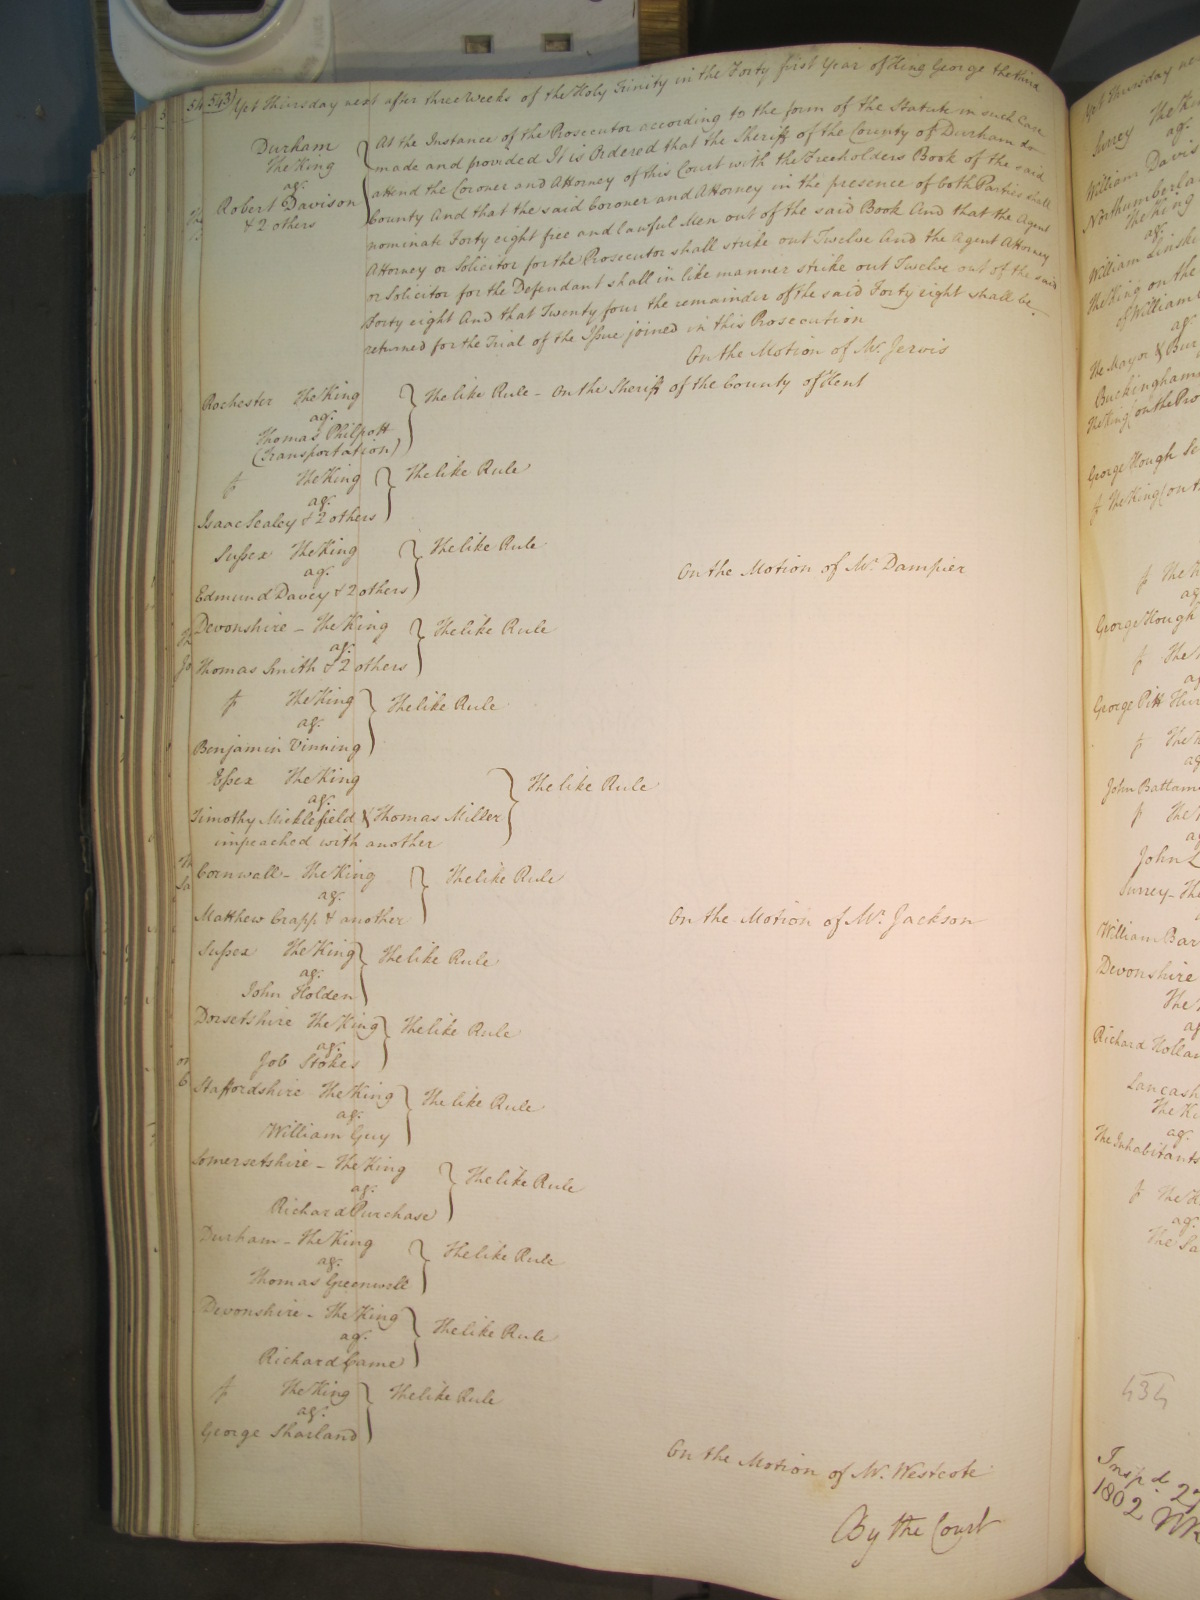 543) Yet Thursday next after three Weeks of the Holy Trinity in the Forty first Year of King George the third
Durham
The King
ag.
Robert Davison
& 2 others
At the Instance of the Prosecutor according to the form of the Statute in such Case
made and provided It is Ordered that the Sheriff of the County of Durham do
attend the Coroner and Attorney of this Court with the Freeholders Book of the said
County And that the said Coroner and Attorney in the presence of both Parties shall
nominate Forty eight free and lawful Men out of the said Book And that the Agent
Attorney or Solicitor for the Prosecutor shall strike out Twelve And the Agent Attorney
or Solicitor for the Defendant shall in like manner strike out Twelve out of the said
Forty eight And that Twenty four the remainder of the said Forty eight shall be
returned for the Trial of the Issue joined in this Prosecution
On the Motion of Mr. Jervis
Rochester The King
ag.
Thomas Philpott
(Transportation)
The like Rule - On the Sheriff of the County of Kent
The King
ag.
Isaac Sealey & 2 others
The like Rule
Sussex The King
ag.
Edmund Davey & 2 others
The like Rule
On the Motion of Mr. Dampier
Devonshire - The King
ag.
Thomas Smith & 2 others
The like Rule
The King
ag.
Benjamin Vinning
The like Rule
Essex The King
ag.
Timothy Micklefield & Thomas Miller
impeached with another
The like Rule
Cornwall - The King
ag.
Matthew Crapp & another
The like Rule
On the Motion of Mr. Jackson
Sussex The King
ag.
John Holden
The like Rule
Dorsetshire The King
ag.
Job Stokes
The like Rule
Staffordshire The King
ag.
William Guy
The like Rule
Somersetshire - The King
ag.
Richard Purchase
The like Rule
Durham - The King
ag.
Thomas Greenwell
The like Rule
Devonshire - The King
ag.
Richard Came
The like Rule
The King
ag.
George Sharland
The like Rule
On the Motion of Mr. Westcote
By the Court
Surrey
ag.
William Davis
The King
ag.
William
The King on the
of William
ag.
The Mayor & Bur
Buckingham
The King (on the Pro
George Hough
The King (on
ag.
George Hough
George Pitt
John Battam
John
Surrey -
William Bar
Devonshire
ag.
Richard Hollan
Lancash
ag.
The Inhabitants
ag.
434
Insp.d 27
1802